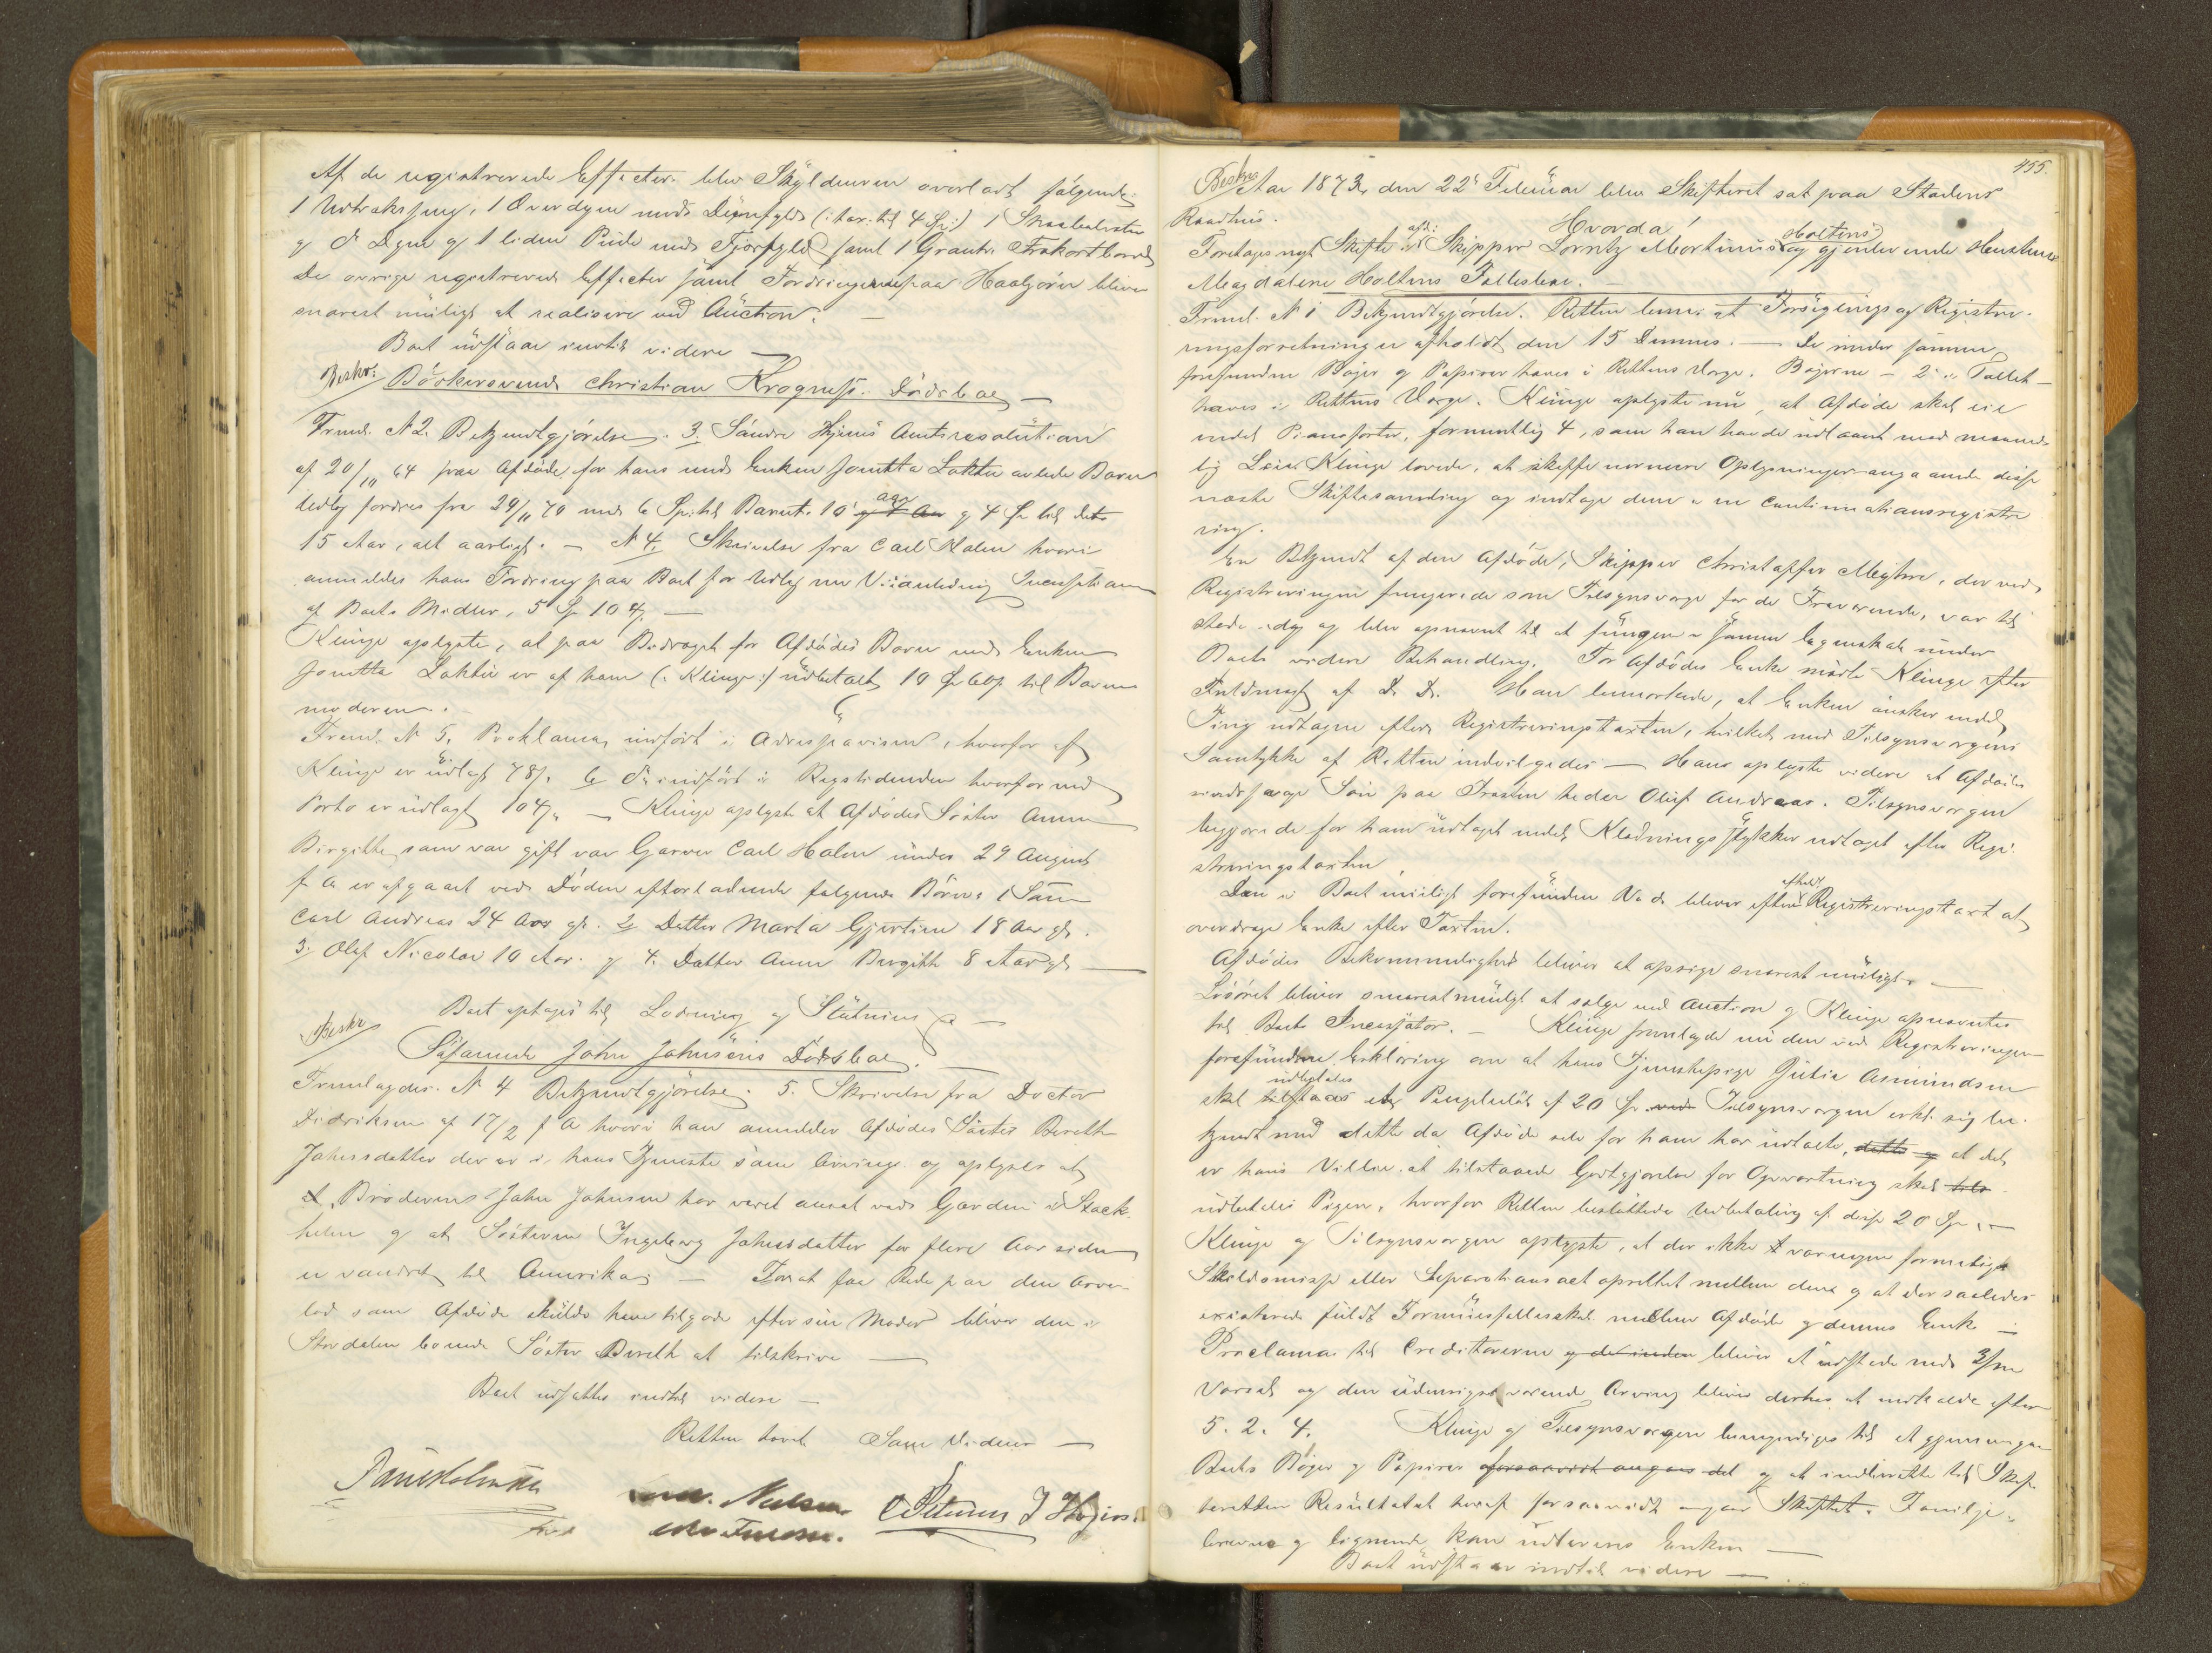 Af de registrerede Effecter blev Skyldneren overladt følgende:
1 Udtræksseng, 1 Overdyne med Duunfyld (: tax. til 4 Sp :) 1
og do Dyne og 1 liden Pude med Fjærfyld samt 1
De øvrige registrerede Effecter samt Fordringerne paa bliver
snarest muligt at realisere ved Auction. —
Boet udstaar indtil videre —
Beskr. Bödkersvend Christian Krogness. Dödsboe —
Freml. N 2. Bekjendtgjörelse. 3. Söndre Amtsresolution
af 20/10 64 paa Afdöde for hans med Enken Lokken avlede Barn
fra 29/11 70 med 6 Sp. til Barnet 10 aar og 4 Sp til dets
15 Aar, alt aarligt. — N 4. Skrivelse fra Carl Holm hvori
anmeldes hans Fordring paa Boet for Udlæg
af Boets Midler, 5 Sp 10 ß. —
Klinge oplyste, at paa Bidraget for Afdödes Barn med Enken
er af ham (: Klinge :) udbetalt 10 Sp 60 ß til Barne
moderen.
Freml. N 5. Proklama, indfört i Adresseavisen, hvorfor af
Klinge er udlagt 78 ß. 6 do indfört i Rigstidenden hvorfor med
Porto er udlagt 104 ß. — Klinge oplyste at Afdödes Söster Anne
Birgitte, som var gift var Garver Carl Holm under 29 August
f A er afgaaet ved Döden efterladende fölgende Börn: 1 Sön
Carl Andreas 24 Aar gl. 2 Datter Marta Gjertine 18 Aar gl.
3. Olaf Nicolai 10 Aar. og 4. Datter Anne Birgitte 8 Aar gl —
Boet optages til Lodning og Slutning —
Beskr
Söfarende John Johnsens Dödsboe. —
Fremlagdes. N 4 Bekjendtgjörelse. 5. Skrivelse fra Doctor
Didriksen af 17/2 f A hvori han anmelder Afdödes Söster Bereth
Johnsdatter der er i hans Tjeneste som Arving og oplyses at
Broderen John Johnsen har været ansat ved Garden i Stock-
holm og at Sösteren Ingeborg Johnsdatter for flere Aar siden
er vandret til Amerika; — For at faa Rede paa den Arve-
lod som Afdöde skulde have tilgode efter sin Moder bliver den i
Stordalen boende Söster Bereth at tilskrive —
Boet udsattes indtil videre —
Retten hævet Som Vidner —
Nielsen
455.
Beskr
Aar 1873, den 22de Februar blev Skifteret sat paa Stadens
Raadhus.
Hvorda
Foretages nyt Skifte i afd: Skipper Lorentz Mortinus Holtens og gjenlevende Hustrue
Magdalene Holtens Fællesboe. —
Freml. N 1 Bekjendtgjörelse. Retten bem: at Forseglings og Registre-
ringsforretningen afholdt den 15 Dennes. — De under samme
forefundne Böger og Papirer haves i Rettens Værge. Bögerne — 2 i Tallet —
haves i Rettens Værge. Klinge oplyste nu, at Afdöde skal eie
endel Pianoforter, formentlig 4, som han havde udlaant mod maaned-
lig Leie. Klinge lovede, at skaffe nærmere Oplysninger angaaende disse
næste Skiftesamling og indtage dem i en Continuationsregistre
ring.
En Bekjendt af den Afdöde, Skipper Christoffer Meyhre, der ved
Registreringen fungerede som Tilsynsværge for de Fraværende, var til
stede idag og blev opnævnt til at fungere i samme Egenskab under
Boets videre Behandling. For Afdödes Enke mödte Klinge efter
Fuldmagt af D. D. Han bemærkede, at Enken önsker endel
Ting udtagne efter Registreringstaxten, hvilket med Tilsynsværgens
Samtykke af Retten indvilgedes — Hans oplyste videre at Afdödes
Sön paa Frasten heder Oluf Andreas. Tilsynsværgen
begjærede for ham udtaget endel Klædningsstykker udtaget efter Regi-
streringstaxten
Den i Boet muligt forefunden Ved bliver efter afholdt Registreringstaxt at
overdrage Enke efter Taxten.
Afdödes Bekvemmelighed bliver at opsige snarest muligt. —
Lösöret bliver snarest muligt at sælge ved Auction og Klinge opnævntes
til Boets Incassator. — Klinge fremlagde nu den ved Registreringen
forefundne Erklæring om at hans Tjenestepige Julie Asmundsen
skal udbetales et Pengebelöb af 20 Sp. Tilsynsværgen erkl. sig be-
kjendt med dette da Afdöde selv for ham har udtalt, at det
er hans Villie at tilstaaende Godtgjörelse for Opvartning skal
udbetales Pigen, hvorfor Retten besluttede Udbetaling af disse 20 Sp. —
Klinge og Tilsynsværgen oplyste, at der ikke var nogen formelig
Skilsmisse eller Separationsact oprettet mellem dem og at der saaledes
existerede fuldt Formuesfællesskab mellem Afdöde og dennes Enke —
Proclama til Creditorerne og det inden bliver at udstede med 3/m
Varsel og den udenrigs værende Arving bliver derhos at indkalde efter
5. 2. 4. Klinge og Tilsynsværgen bemyndiges til at gjennemgaa
Boets Böger og Papirer forsaavidt angaar det og at indberette til Skif-
teretten Resultatet heraf forsaavidt angaar Skiftet. Familje-
breve og lignende kan udleveres Enken —
Boet udstaar indtil videre —